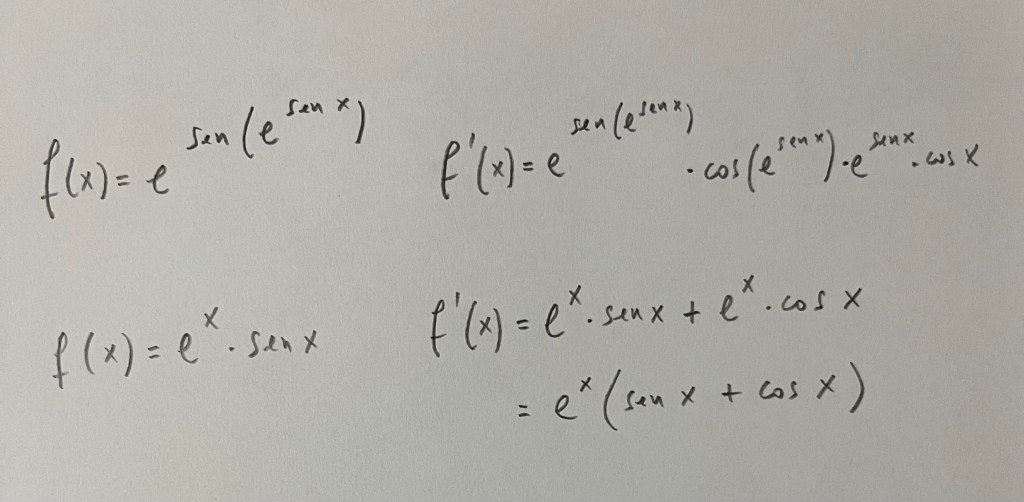 f(x) = e^{sen(e^{sen x})} f'(x) = e^{sen(e^{sen x})} · cos(e^{sen x}) · e^{sen x} · cos x
f(x) = e^x · sen x f'(x) = e^x · sen x + e^x · cos x
= e^x (sen x + cos x)